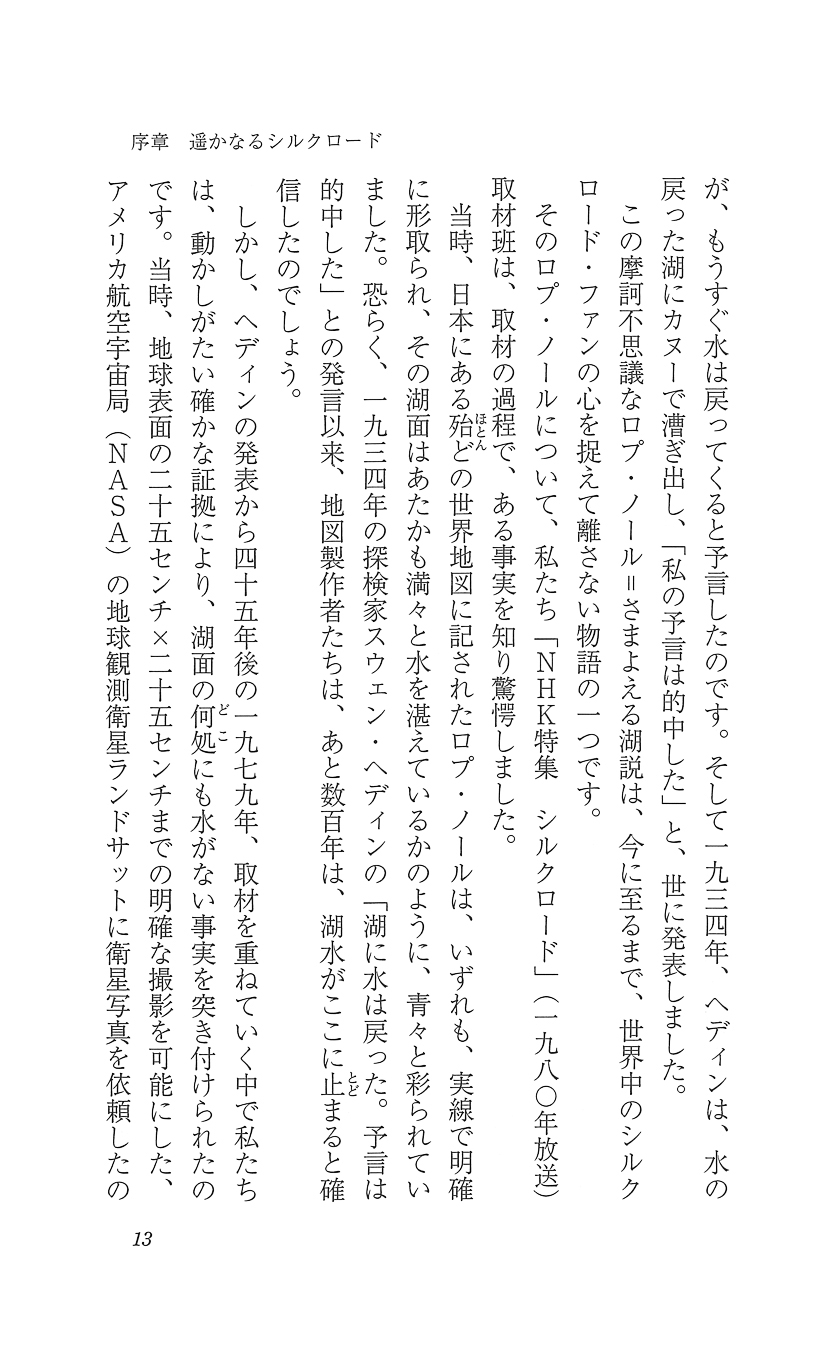 序章　遥かなるシルクロード
が、もうすぐ水は戻ってくると予言したのです。そして一九三四年、ヘディンは、水の
戻った湖にカヌーで漕ぎ出し、「私の予言は的中した」と、世に発表しました。
　この摩訶不思議なロプ・ノール＝さまよえる湖説は、今に至るまで、世界中のシルク
ロード・ファンの心を捉えて離さない物語の一つです。
　そのロプ・ノールについて、私たち「ＮＨＫ特集　シルクロード」（一九八〇年放送）
取材班は、取材の過程で、ある事実を知り驚愕しました。
　当時、日本にある殆どの世界地図に記されたロプ・ノールは、いずれも、実線で明確
ほとん
に形取られ、その湖面はあたかも満々と水を湛えているかのように、青々と彩られてい
ました。恐らく、一九三四年の探検家スウェン・ヘディンの「湖に水は戻った。予言は
的中した」との発言以来、地図製作者たちは、あと数百年は、湖水がここに止まると確
とど
信したのでしょう。
　しかし、ヘディンの発表から四十五年後の一九七九年、取材を重ねていく中で私たち
は、動かしがたい確かな証拠により、湖面の何処にも水がない事実を突き付けられたの
どこ
です。当時、地球表面の二十五センチ×二十五センチまでの明確な撮影を可能にした、
アメリカ航空宇宙局（ＮＡＳＡ）の地球観測衛星ランドサットに衛星写真を依頼したの
13